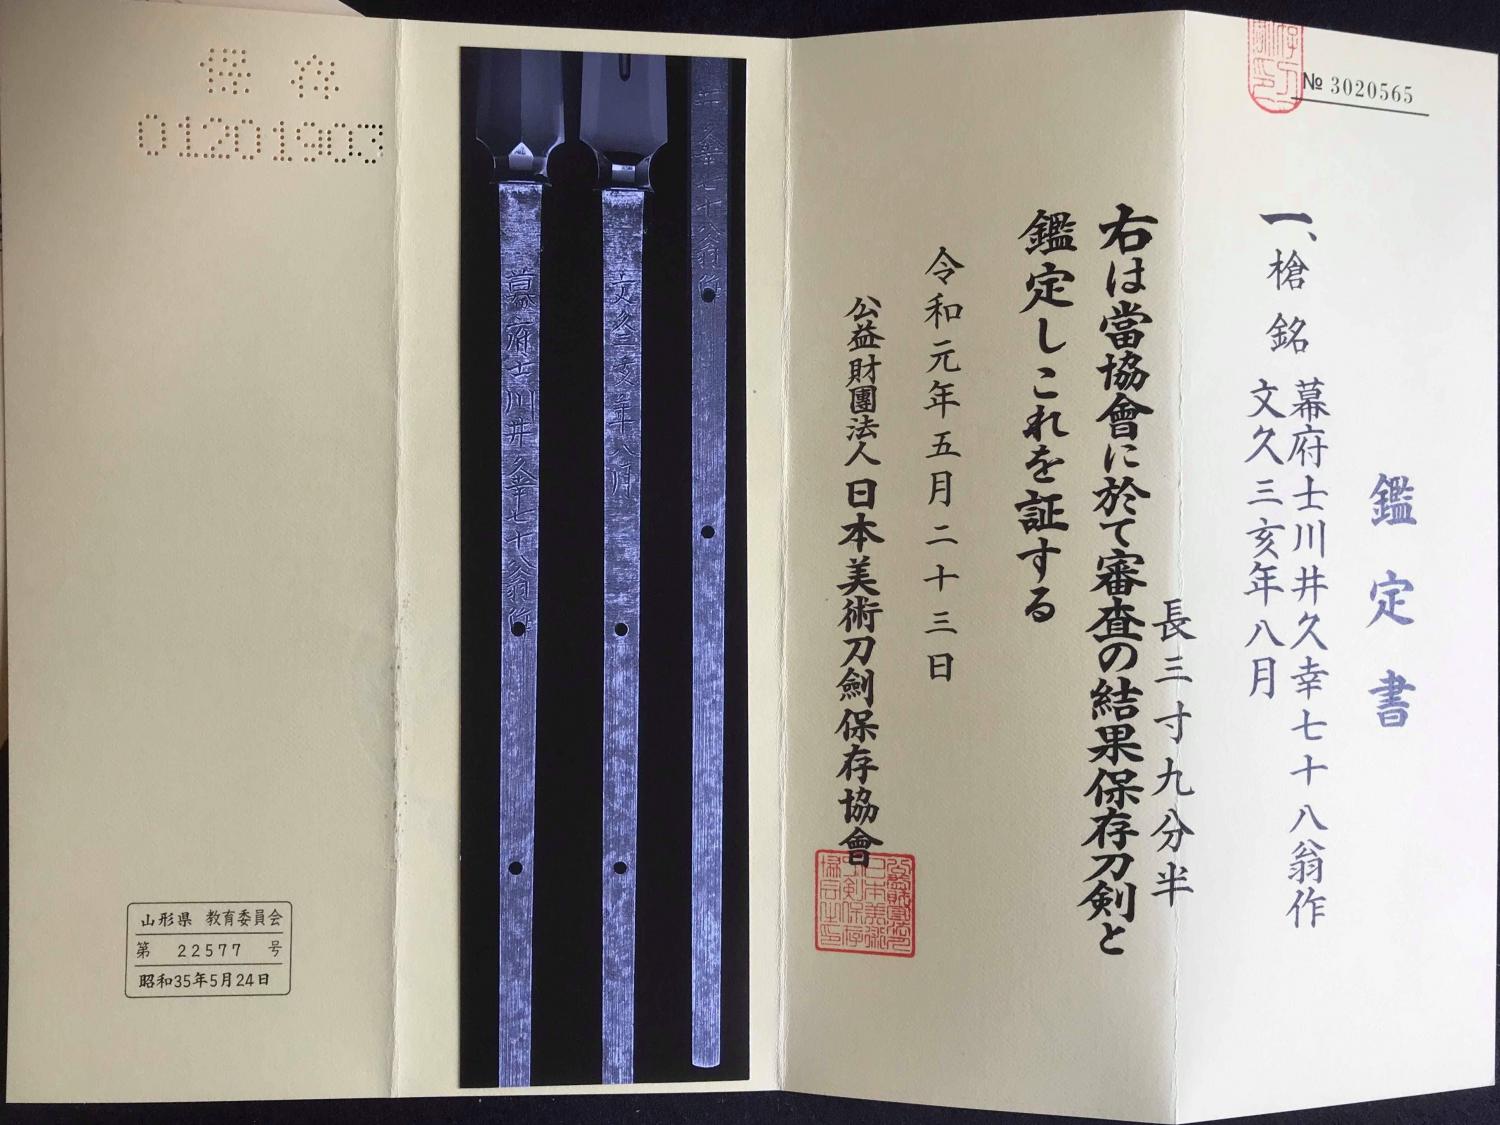 № 3020565
鑑定書
一、槍 銘 幕府士川井久幸七十八翁作
文久三亥年八月
長三寸九分半
右は當協會に於て審査の結果保存刀剣と
鑑定しこれを証する
令和元年五月二十三日
公益財團法人日本美術刀劍保存協會
幕府士川井久幸七十八翁作
文久三亥年八月
井久幸七十八翁作
保存
01201903
山形県 教育委員会
第 22577 号
昭和35年5月24日